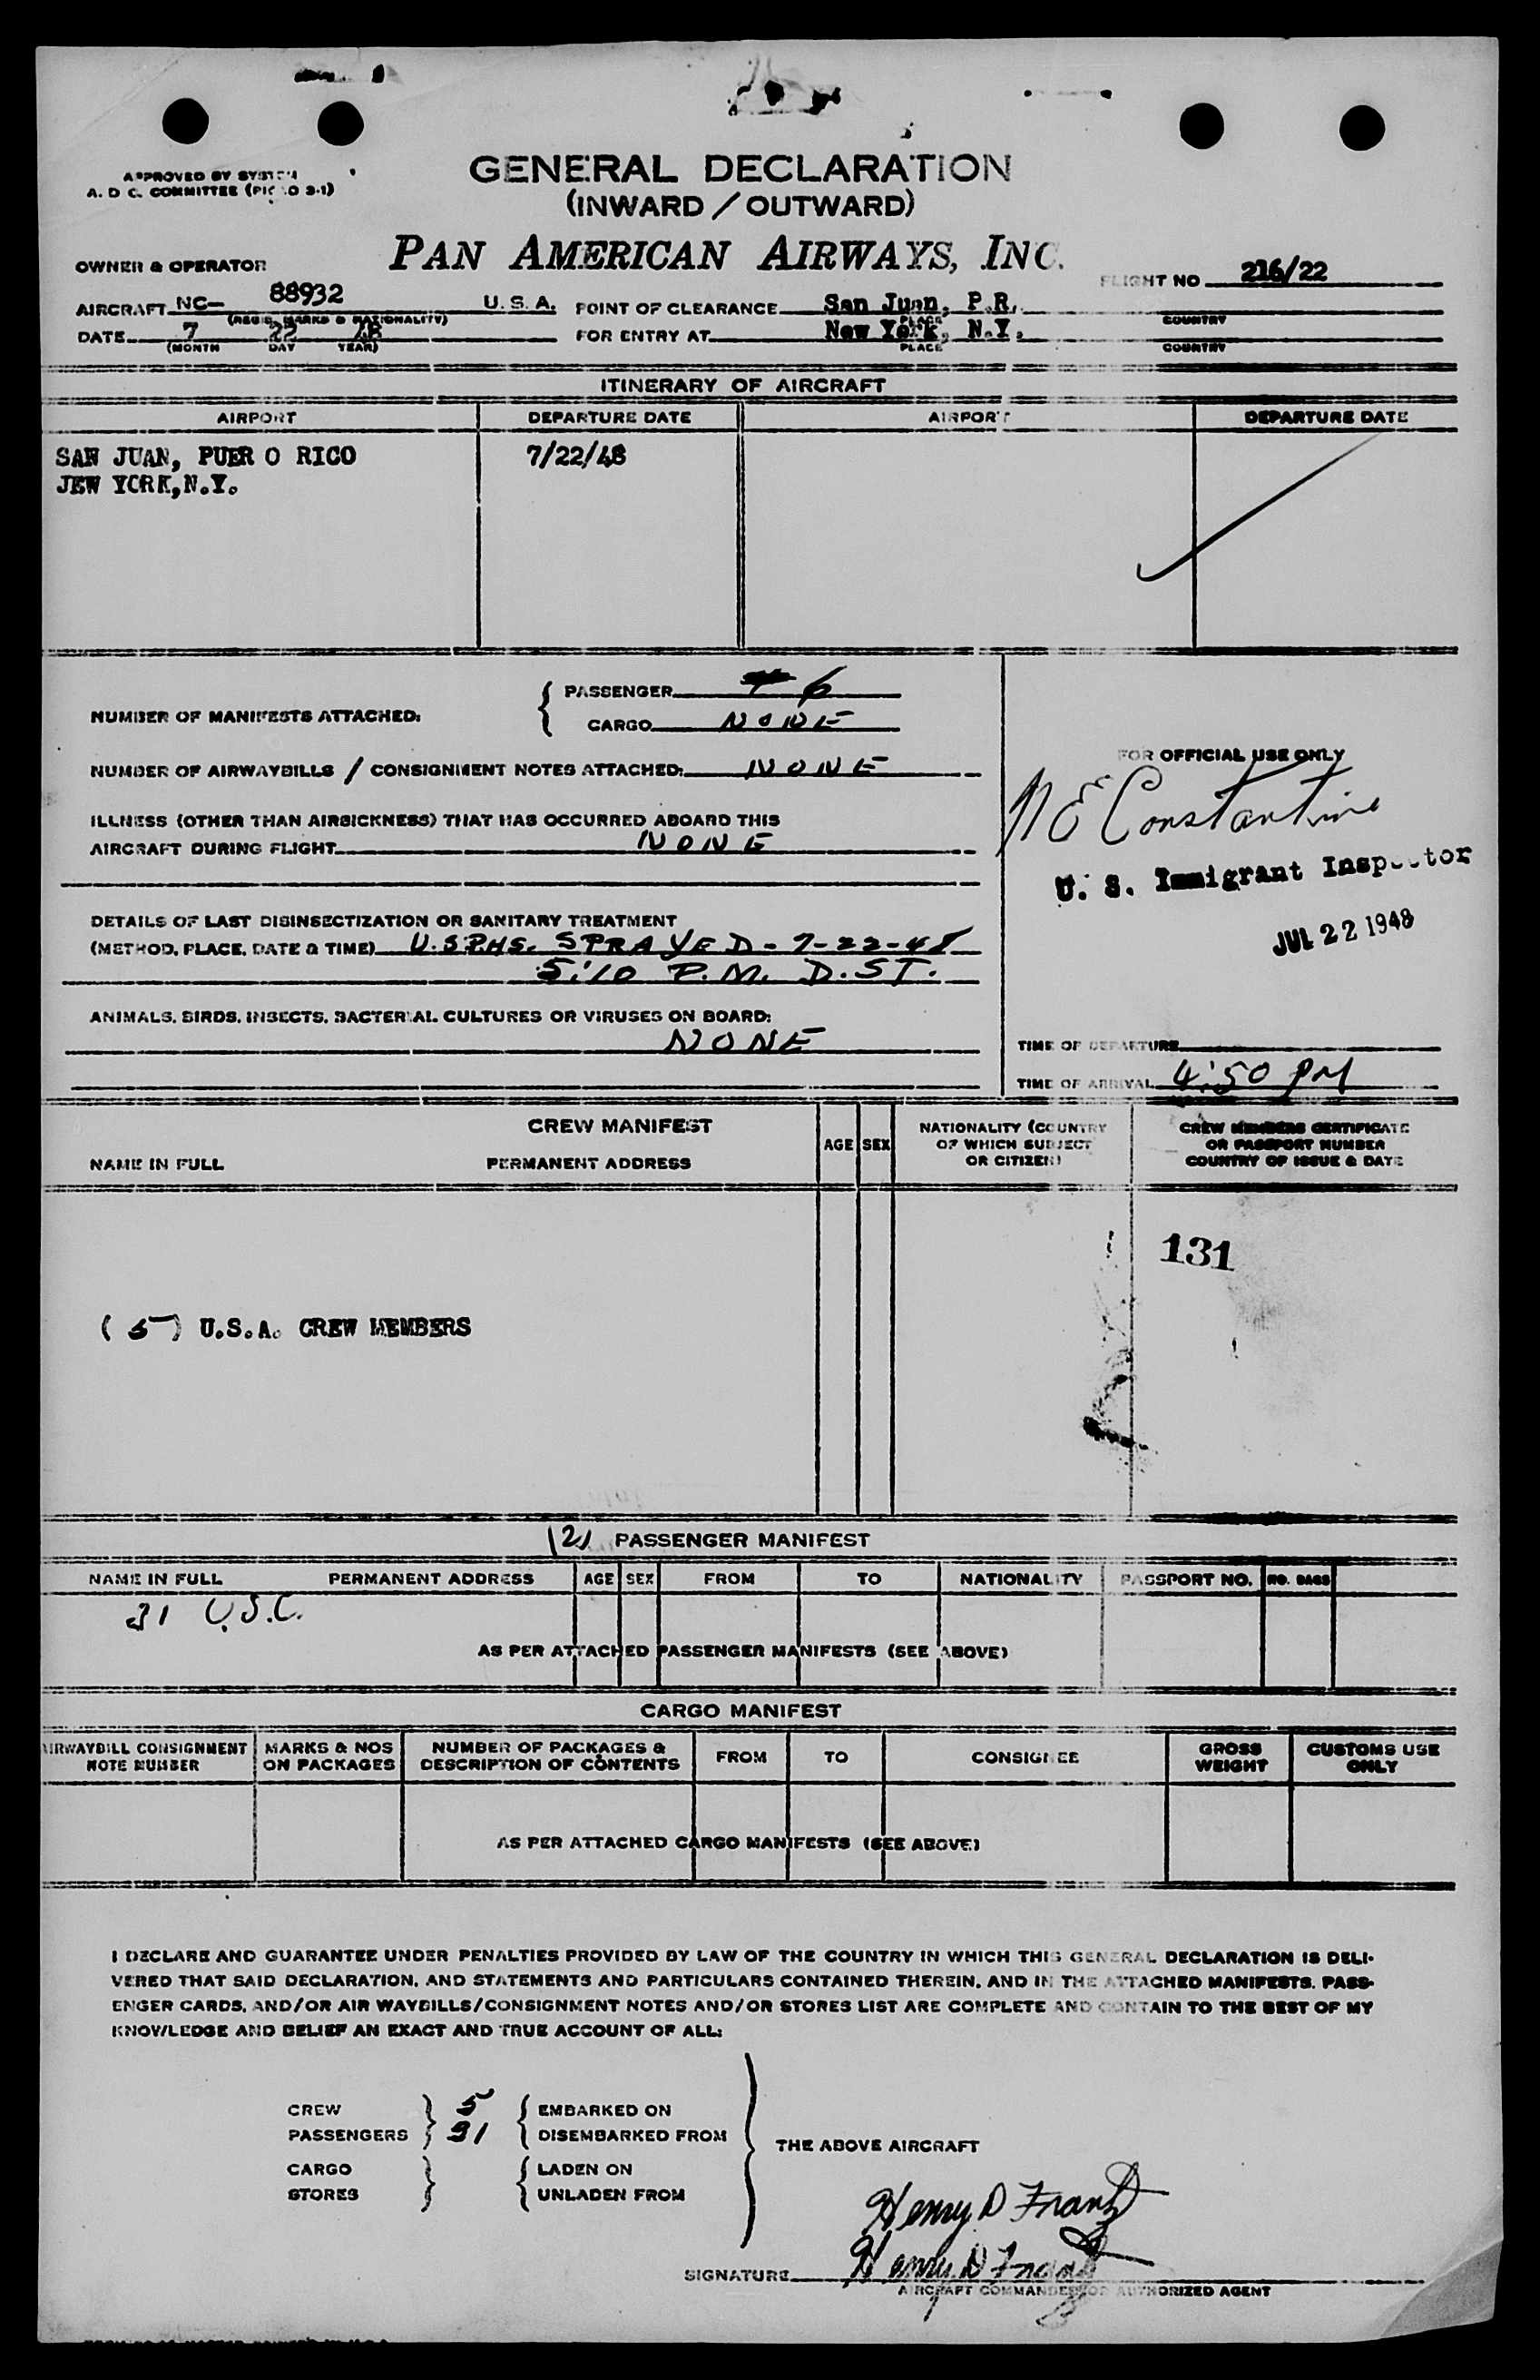 APPROVED BY SYSTEM
A. D. C. COMMITTEE (PICAO 3-1)
GENERAL DECLARATION
(INWARD / OUTWARD)
OWNER & OPERATOR
PAN AMERICAN AIRWAYS, INC.
FLIGHT NO 216/22
AIRCRAFT NC- 88932 U. S. A.
(REGIS. MARKS & NATIONALITY)
POINT OF CLEARANCE San Juan, P.R.
PLACE COUNTRY
DATE 7 22 48
(MONTH DAY YEAR)
FOR ENTRY AT New York, N.Y.
PLACE COUNTRY
ITINERARY OF AIRCRAFT
AIRPORT DEPARTURE DATE AIRPORT DEPARTURE DATE
SAN JUAN, PUER O RICO 7/22/48
JEW YORK,N.Y.
NUMBER OF MANIFESTS ATTACHED: PASSENGER 6
CARGO NONE
NUMBER OF AIRWAYBILLS / CONSIGNMENT NOTES ATTACHED: NONE
ILLNESS (OTHER THAN AIRSICKNESS) THAT HAS OCCURRED ABOARD THIS
AIRCRAFT DURING FLIGHT NONE
DETAILS OF LAST DISINSECTIZATION OR SANITARY TREATMENT
(METHOD, PLACE, DATE & TIME) U.S.P.H.S. SPRAYED - 7-22-48
5:10 P.M. D.ST.
ANIMALS, BIRDS, INSECTS, BACTERIAL CULTURES OR VIRUSES ON BOARD:
NONE
FOR OFFICIAL USE ONLY
NE Constantine
U. S. Immigrant Inspector
JUL 22 1948
TIME OF DEPARTURE
TIME OF ARRIVAL 4:50 PM
CREW MANIFEST
NAME IN FULL PERMANENT ADDRESS AGE SEX
NATIONALITY (COUNTRY
OF WHICH SUBJECT
OR CITIZEN)
CREW MEMBERS CERTIFICATE
OR PASSPORT NUMBER
COUNTRY OF ISSUE & DATE
131
( 5 ) U.S.A. CREW MEMBERS
(2) PASSENGER MANIFEST
NAME IN FULL PERMANENT ADDRESS AGE SEX FROM TO NATIONALITY PASSPORT NO. NO. BAGS
31 U.S.C.
AS PER ATTACHED PASSENGER MANIFESTS (SEE ABOVE)
CARGO MANIFEST
AIRWAYBILL CONSIGNMENT
NOTE NUMBER
MARKS & NOS
ON PACKAGES
NUMBER OF PACKAGES &
DESCRIPTION OF CONTENTS
FROM TO CONSIGNEE
GROSS
WEIGHT
CUSTOMS USE
ONLY
AS PER ATTACHED CARGO MANIFESTS (SEE ABOVE)
I DECLARE AND GUARANTEE UNDER PENALTIES PROVIDED BY LAW OF THE COUNTRY IN WHICH THIS GENERAL DECLARATION IS DELI-
VERED THAT SAID DECLARATION, AND STATEMENTS AND PARTICULARS CONTAINED THEREIN, AND IN THE ATTACHED MANIFESTS, PASS-
ENGER CARDS, AND/OR AIR WAYBILLS/CONSIGNMENT NOTES AND/OR STORES LIST ARE COMPLETE AND CONTAIN TO THE BEST OF MY
KNOWLEDGE AND BELIEF AN EXACT AND TRUE ACCOUNT OF ALL:
CREW 5 EMBARKED ON
PASSENGERS 31 DISEMBARKED FROM
THE ABOVE AIRCRAFT
CARGO LADEN ON
STORES UNLADEN FROM
Henry D Frantz
SIGNATURE Henry D Frantz
AIRCRAFT COMMANDER OR AUTHORIZED AGENT